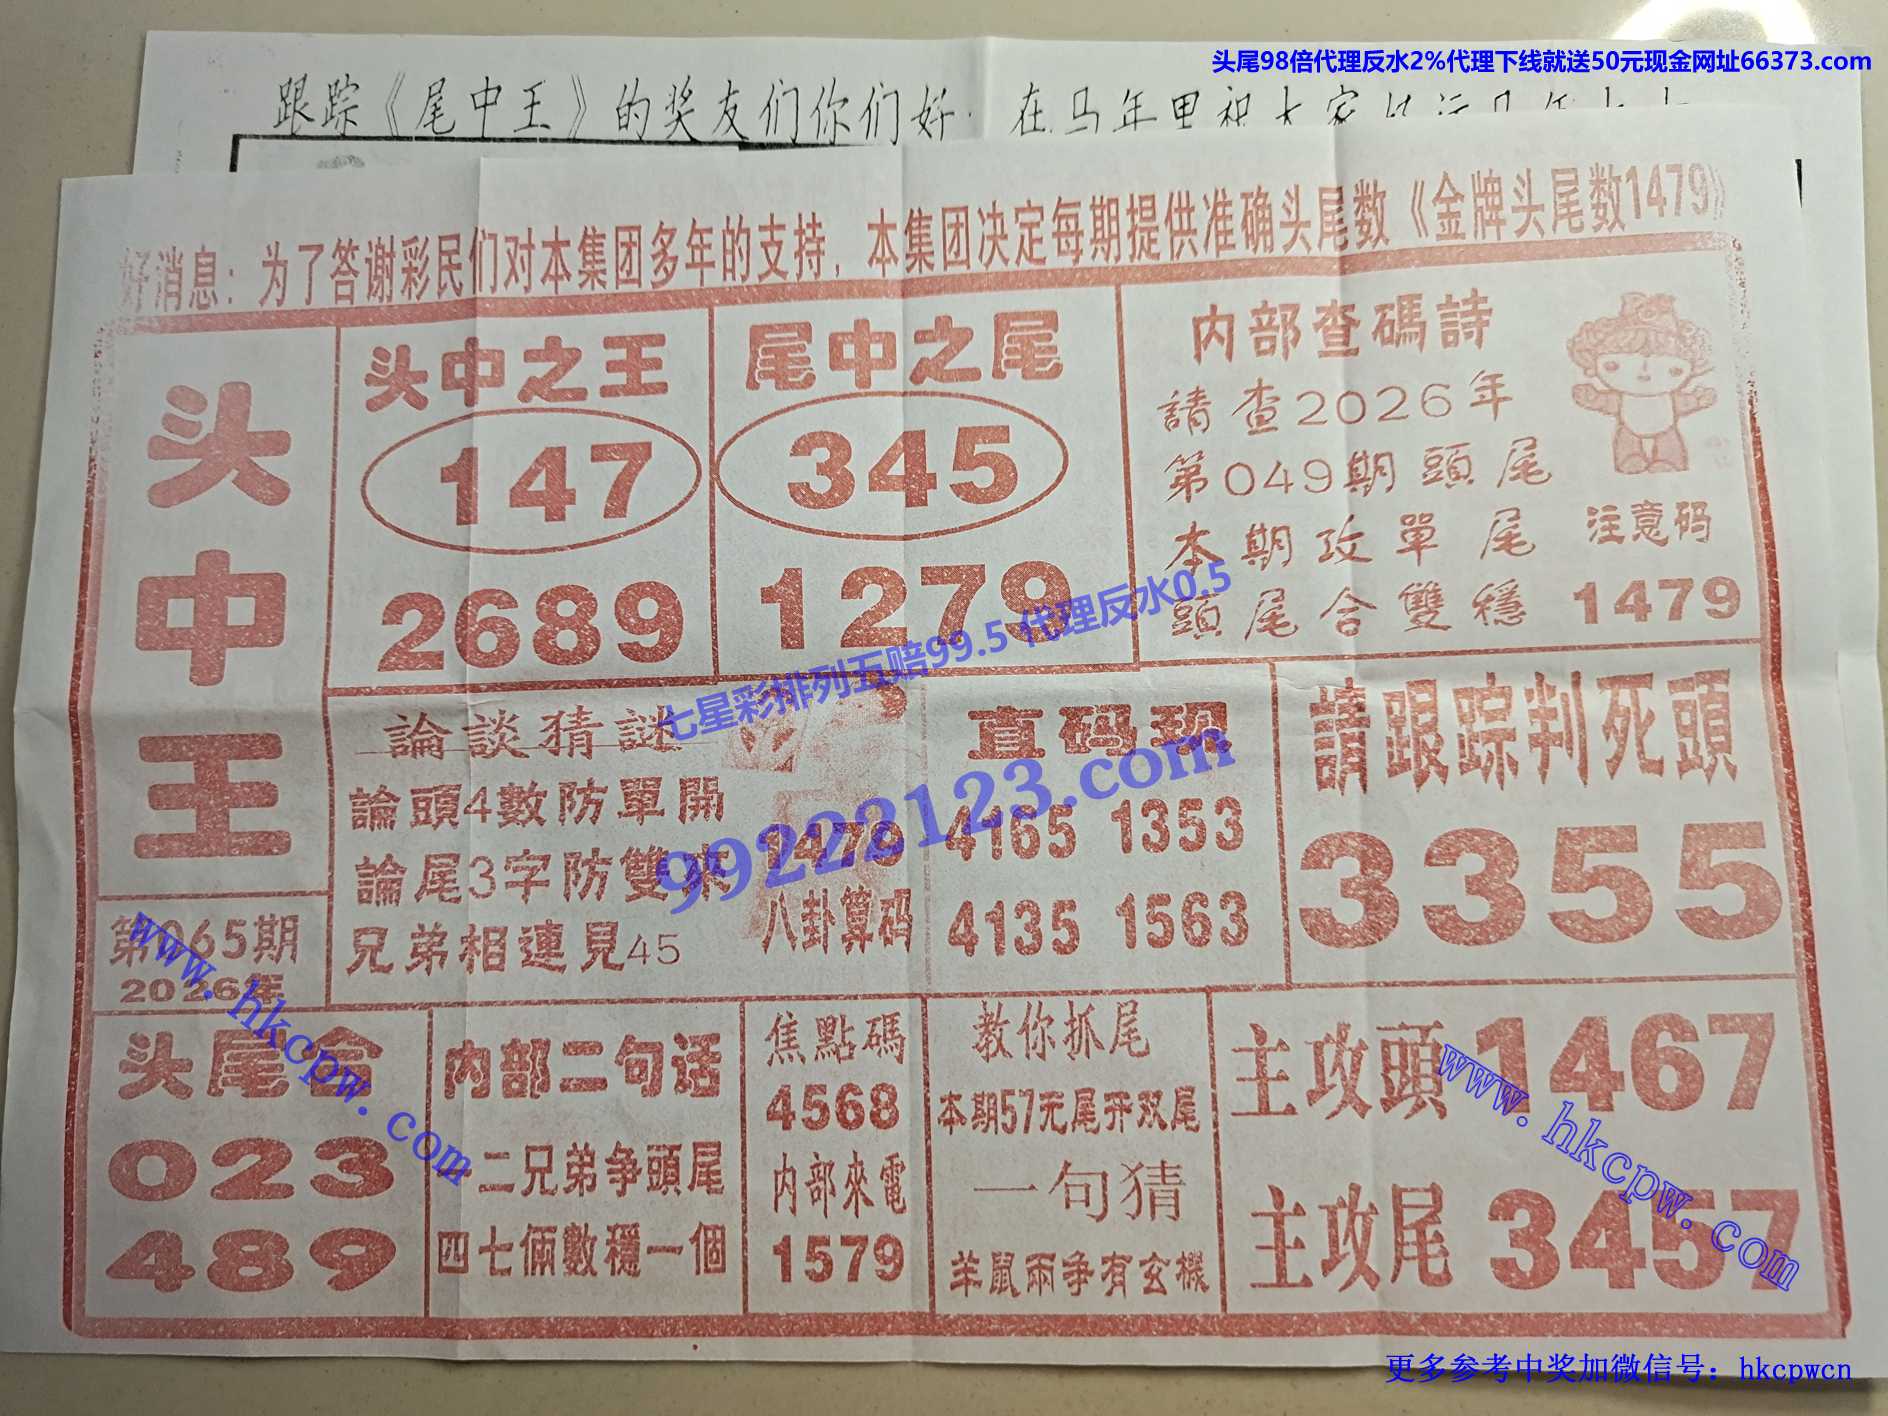 头尾98倍代理反水2%代理下线就送50元现金网址66373.com
跟踪《尾中王》的奖友们你们好
好消息：为了答谢彩民们对本集团多年的支持，本集团决定每期提供准确头尾数《金牌头尾数1479》
头中王
第065期
2026年
头中之王
147
2689
尾中之尾
345
1279
内部查碼詩
請查2026年
第049期頭尾
本期攻單尾
頭尾合雙穩
注意码
1479
論談猜謎
論頭4數防單開
論尾3字防雙來
兄弟相連見45
1479
八卦算码
直码现
4165 1353
4135 1563
請跟踪判死頭
3355
头尾合
023
489
内部二句话
一二兄弟争頭尾
四七倆數穩一個
焦點碼
4568
内部來電
1579
教你抓尾
本期57元尾开双尾
一句猜
羊鼠兩争有玄機
主攻頭1467
主攻尾3457
七星彩排列五赔99.5 代理反水0.5
99222123.com
www.hkcpw.com
www.hkcpw.com
更多参考中奖加微信号：hkcpwcn